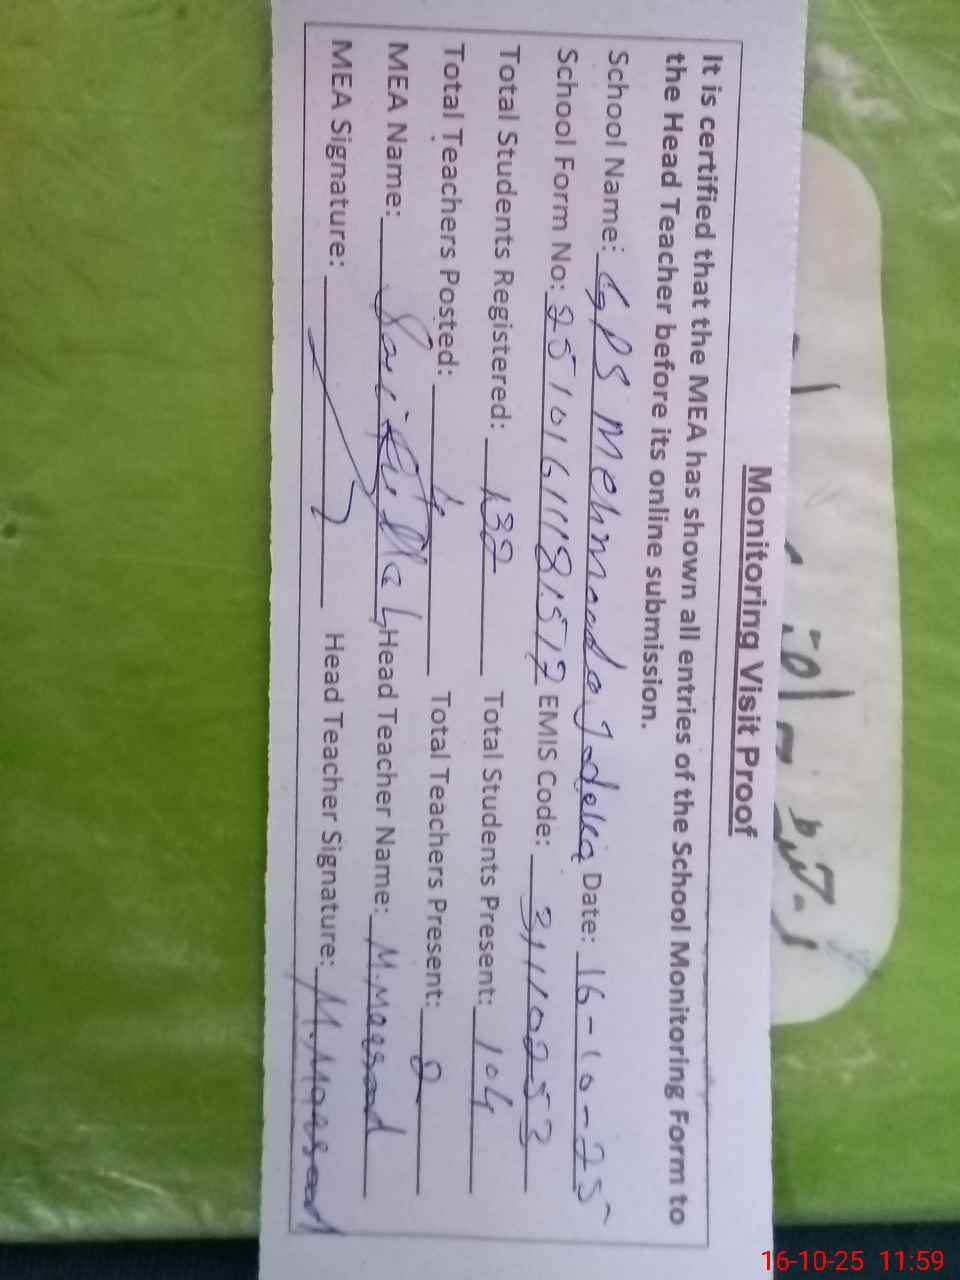 Monitoring Visit Proof
It is certified that the MEA has shown all entries of the School Monitoring Form to
the Head Teacher before its online submission.
School Name: GPS Mehmooda Date: 16-10-25
School Form No: EMIS Code: 31110253
Total Students Registered: 132 Total Students Present: 104
Total Teachers Posted: 4 Total Teachers Present: 2
MEA Name: Head Teacher Name: M. Maqsood
MEA Signature: Head Teacher Signature: M. Maqsood
16-10-25 11:59